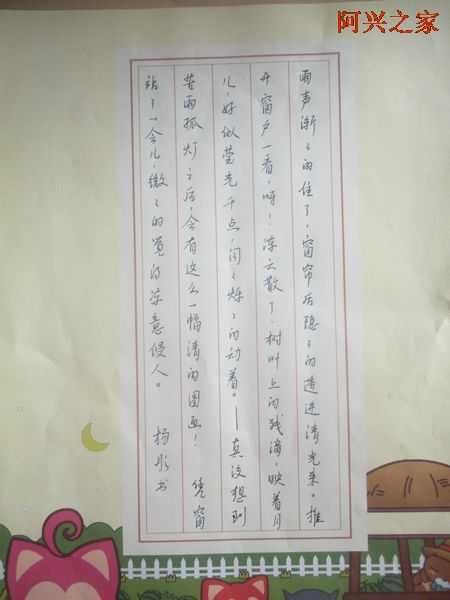 阿兴之家
雨声渐々的住了，窗帘后隐々的透进清光来。推
开窗户一看，呀！凉云散了，树叶上的残滴，映着月
儿，好似萤光千点，闪々烁々的动着。——真没想到
苦雨孤灯之后，会有这么一幅清的图画！凭窗
站了一会儿，微々的觉得凉意侵人。 杨彤书